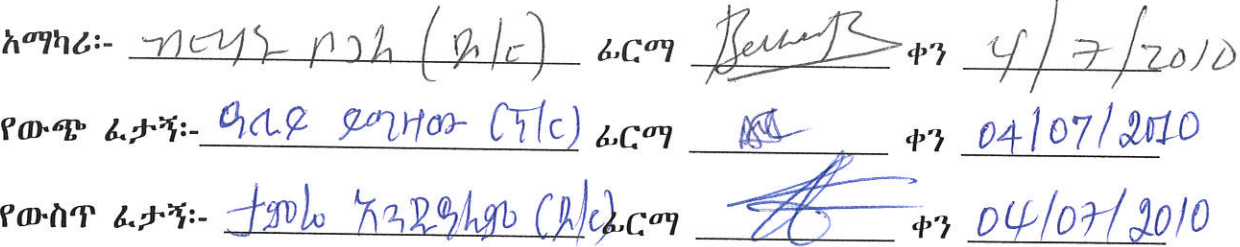 አማካሪ፡- ብርሃኑ ቦጋለ (ዶ/ር) ፊርማ ቀን 4/7/2010
የውጭ ፈታኝ፡- ዓሊይ ይማዘው (ዶ/ር) ፊርማ ቀን 04/07/2010
የውስጥ ፈታኝ፡- ታምሬ አንዷዓለም (ዶ/ር) ፊርማ ቀን 04/07/2010